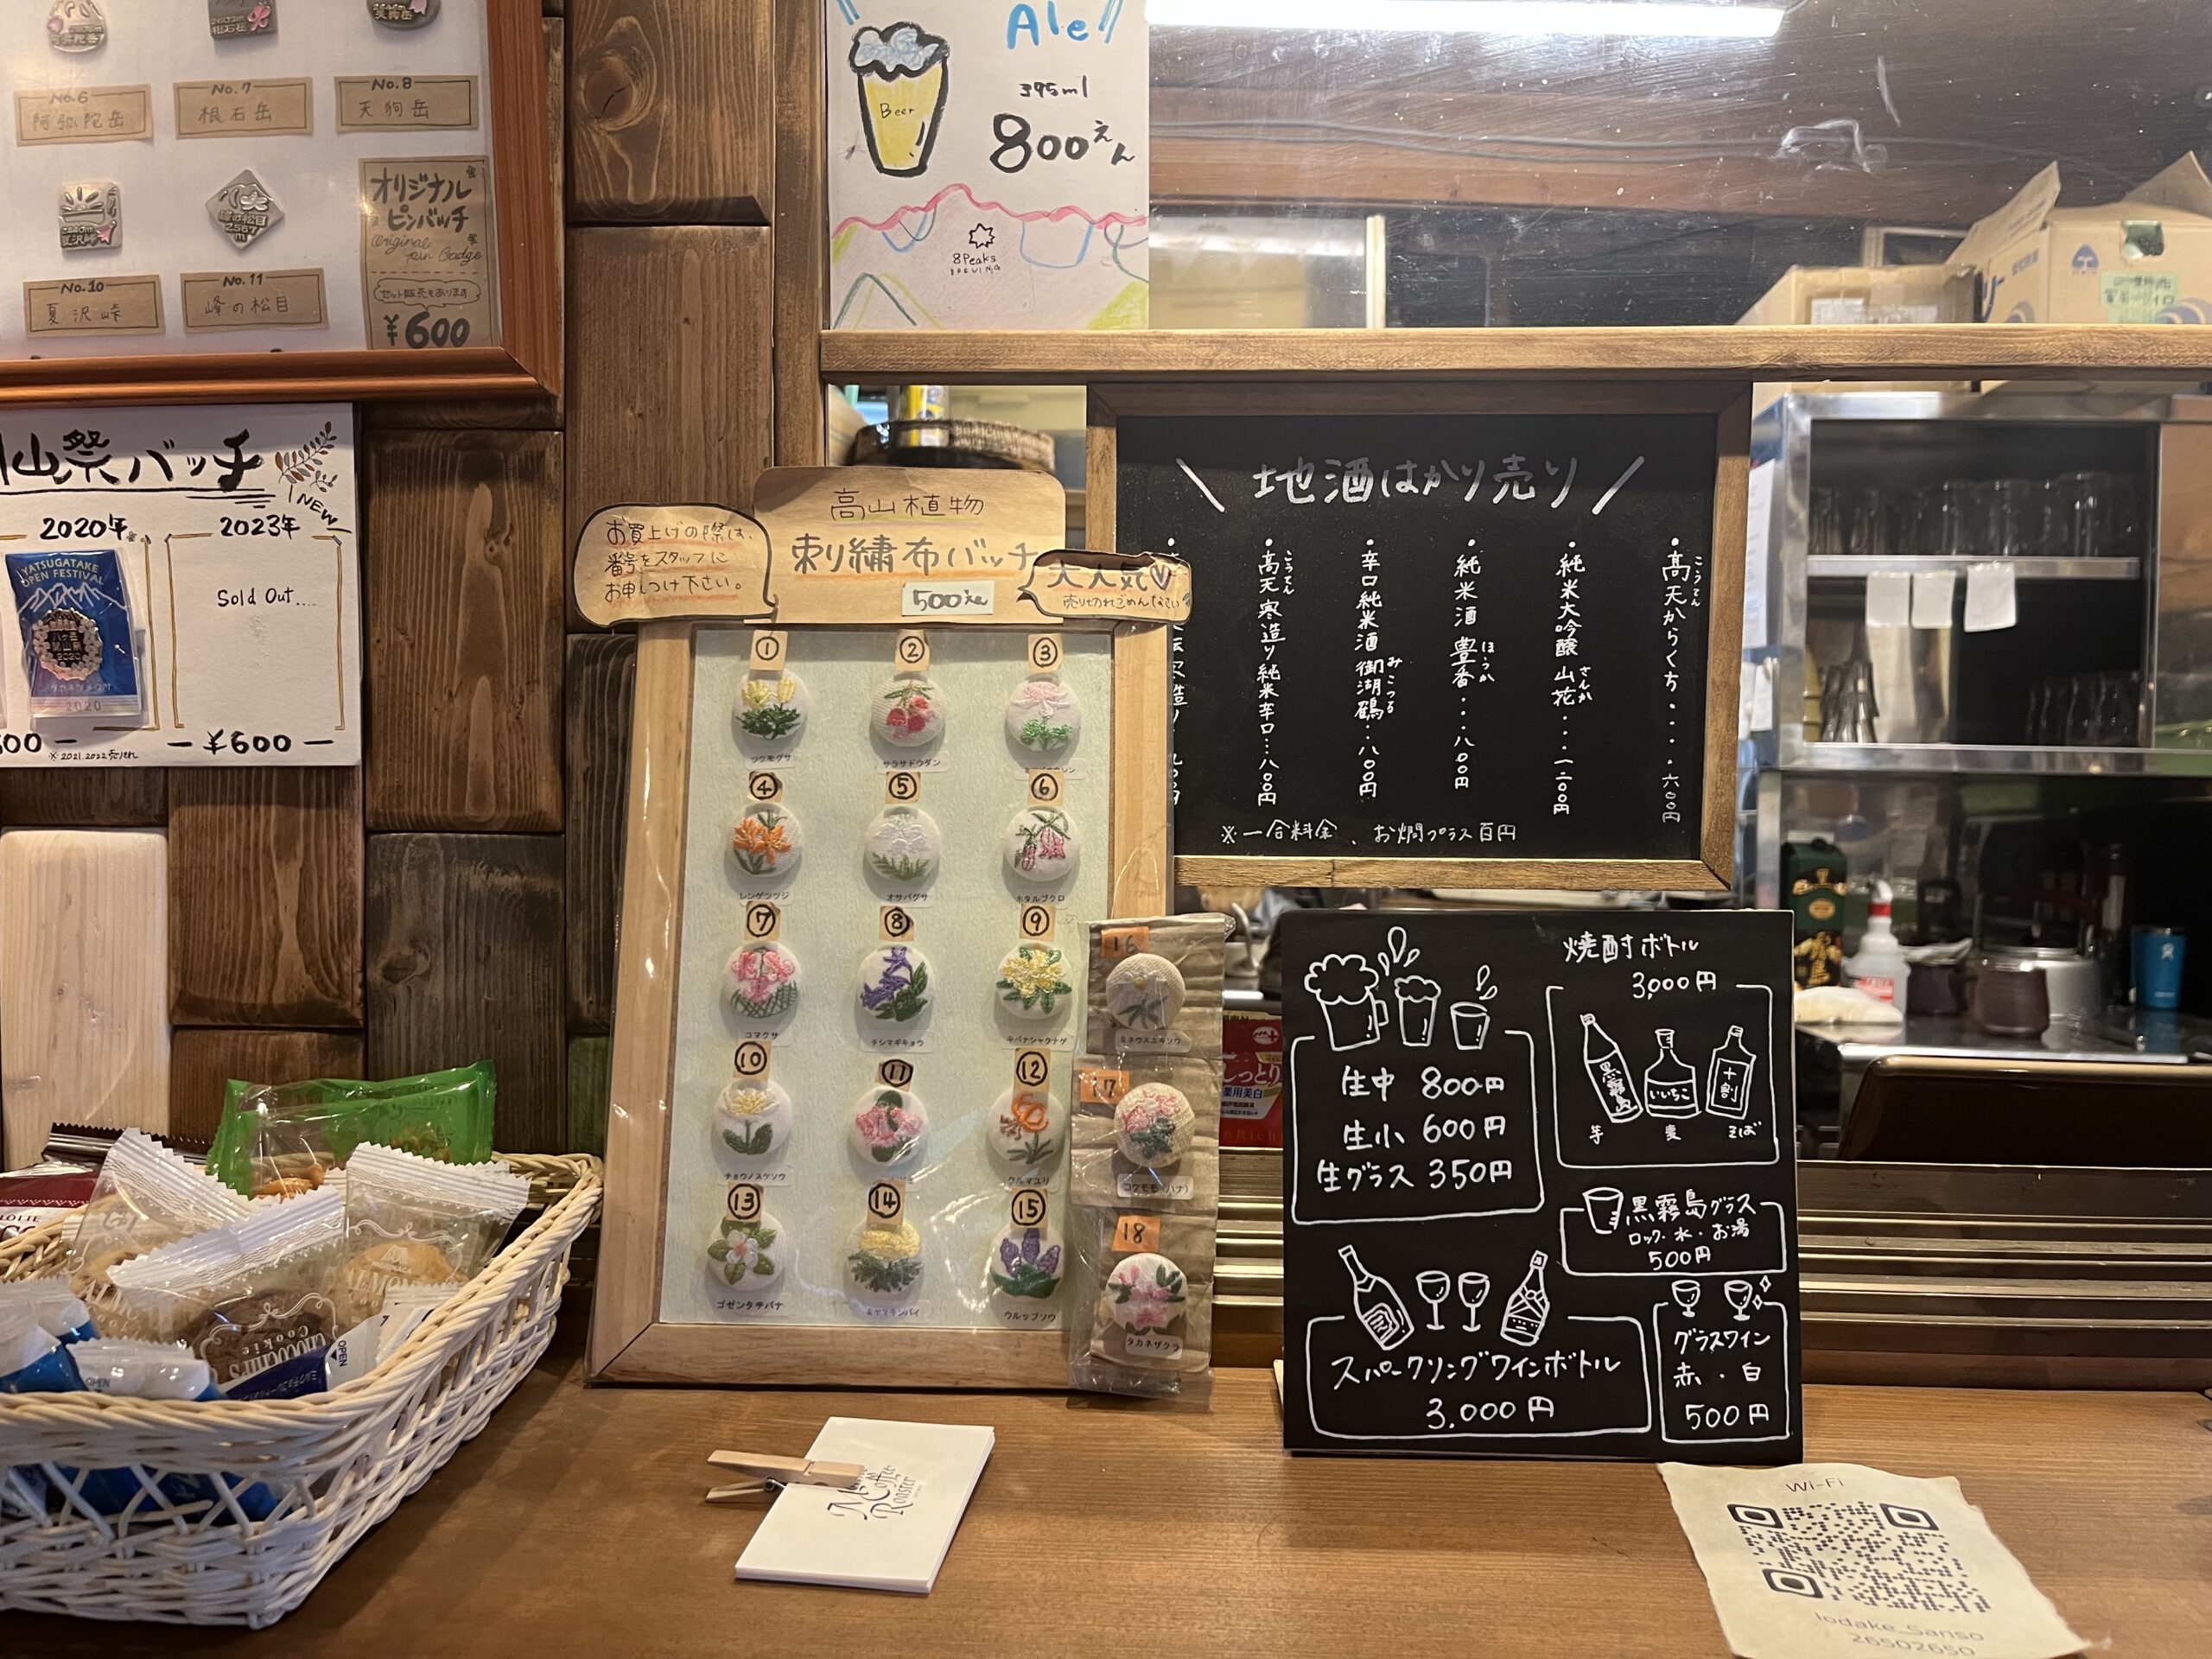 No.6
阿弥陀岳
No.7
根石岳
No.8
天狗岳
オリジナル
ピンバッチ
Original
Pin Badge
セット販売もあります
¥600
No.10
夏沢峠
No.11
峰の松目
2567
m
山祭バッチ
NEW
2020年
2023年
YATSUGATAKE
OPEN FESTIVAL
2020
Sold Out....
00 —
— ¥600 —
※2021.2022売切れ
Ale
Beer
395ml
800えん
8Peaks
BREWING
お買上げの際は、
番号をスタッフに
お申しつけ下さい。
高山植物
刺繍布バッチ
500えん
大人気♡
売り切れごめんなさい
①
②
③
ツクモグサ
サラサドウダン
④
⑤
⑥
レンゲツツジ
オサバグサ
ホタルブクロ
⑦
⑧
⑨
コマクサ
チシマギキョウ
キバナシャクナゲ
⑩
⑪
⑫
チョウノスケソウ
クルマユリ
⑬
⑭
⑮
ゴゼンタチバナ
ミヤマキンバイ
ウルップソウ
16
ミネウスユキソウ
17
コケモモ(ハナ)
18
タカネザクラ
\ 地酒はかり売り /
・高天からくち・・・・・六〇〇円
こうてん
・純米大吟醸 山花・・・・一二〇〇円
さんか
・純米酒 豊香・・・八〇〇円
ほうか
・辛口純米酒 御湖鶴・・・八〇〇円
みこつる
・高天 寒造り純米辛口・・・八〇〇円
こうてん
※一合料金、お燗プラス百円
生中 800円
生小 600円
生グラス 350円
焼酎ボトル
3,000円
黒霧島
いいちこ
十割
芋
麦
そば
黒霧島グラス
ロック・水・お湯
500円
スパークリングワインボトル
3.000円
グラスワイン
赤・白
500円
しっとり
薬用美白
Coffee
Roaster
Chocochips
Cookie
OPEN
OPEN
Wi-Fi
Iodake_Sanso
26502650